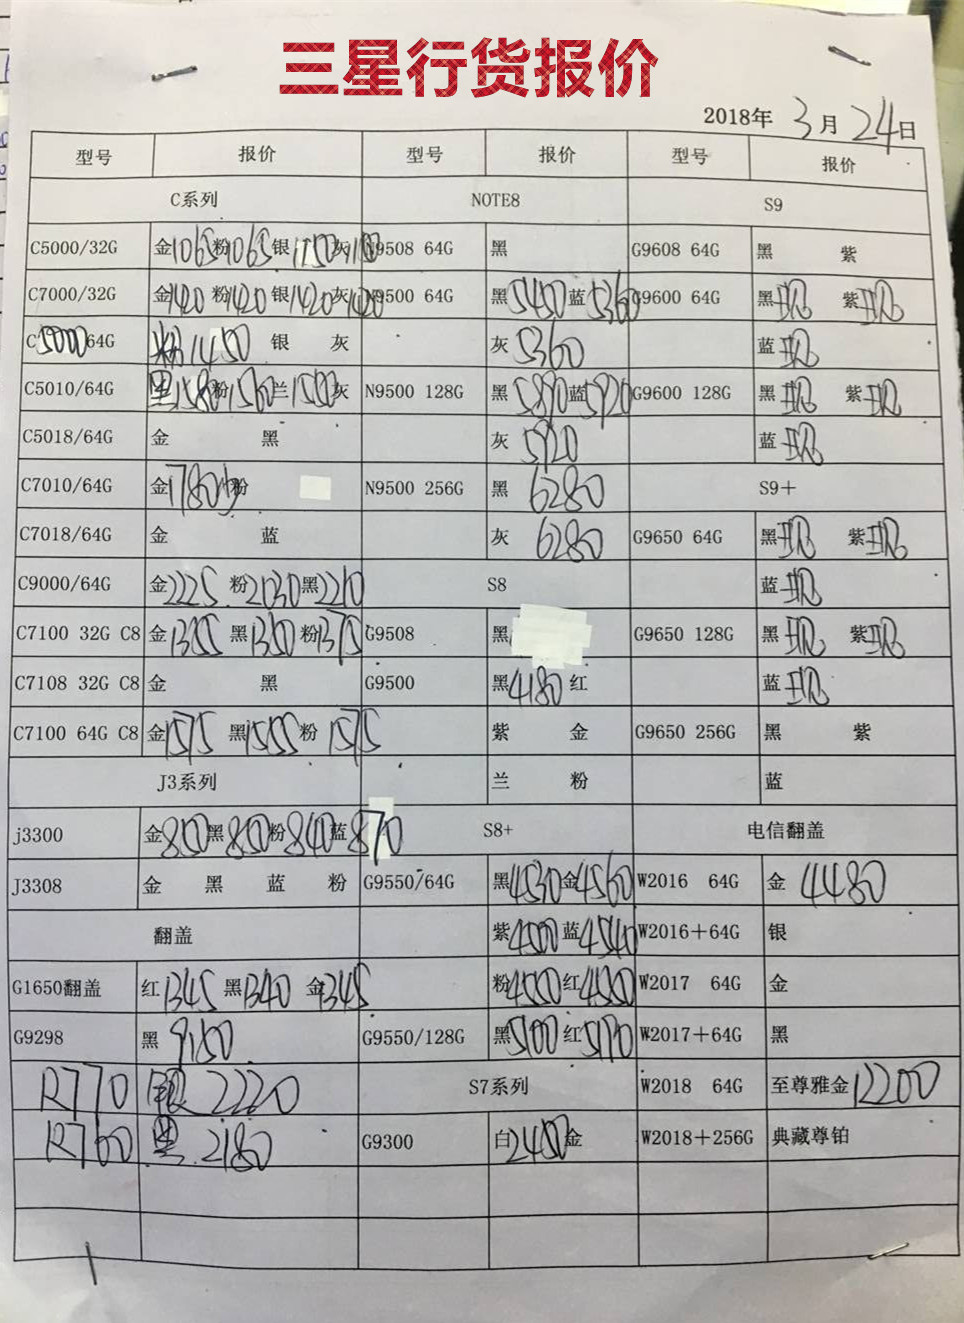 三星行货报价
2018年 3月24日
型号 报价 型号 报价 型号 报价
C系列 NOTE8 S9
C5000/32G 金1065 粉1065 银1150 灰 N9508 64G 黑 G9608 64G 黑 紫
C7000/32G 金1420 粉1420 银1420 灰1420 N9500 64G 黑5450 蓝5360 G9600 64G 黑现 紫现
C5000 64G 粉1450 银 灰 灰5360 蓝现
C5010/64G 黑1580 粉1560 兰1580 灰 N9500 128G 黑5890 蓝5920 G9600 128G 黑现 紫现
C5018/64G 金 黑 灰5920 蓝现
C7010/64G 金1780 粉 N9500 256G 黑6280 S9+
C7018/64G 金 蓝 灰6280 G9650 64G 黑现 紫现
C9000/64G 金2225 粉2030 黑2210 S8 蓝现
C7100 32G C8 金1355 黑1350 粉1375 G9508 黑 G9650 128G 黑现 紫现
C7108 32G C8 金 黑 G9500 黑4180 红 蓝现
C7100 64G C8 金1575 黑1555 粉1575 紫 金 G9650 256G 黑 紫
J3系列 兰 粉 蓝
j3300 金850 黑850 粉840 蓝870 S8+ 电信翻盖
J3308 金 黑 蓝 粉 G9550/64G 黑4530 金4560 W2016 64G 金4480
翻盖 紫4500 蓝4540 W2016+64G 银
G1650翻盖 红1345 黑1340 金1345 粉4550 红4550 W2017 64G 金
G9298 黑9150 G9550/128G 黑5100 红5170 W2017+64G 黑
R770 银2220 S7系列 W2018 64G 至尊雅金12200
R760 黑2180 G9300 白2450 金 W2018+256G 典藏尊铂